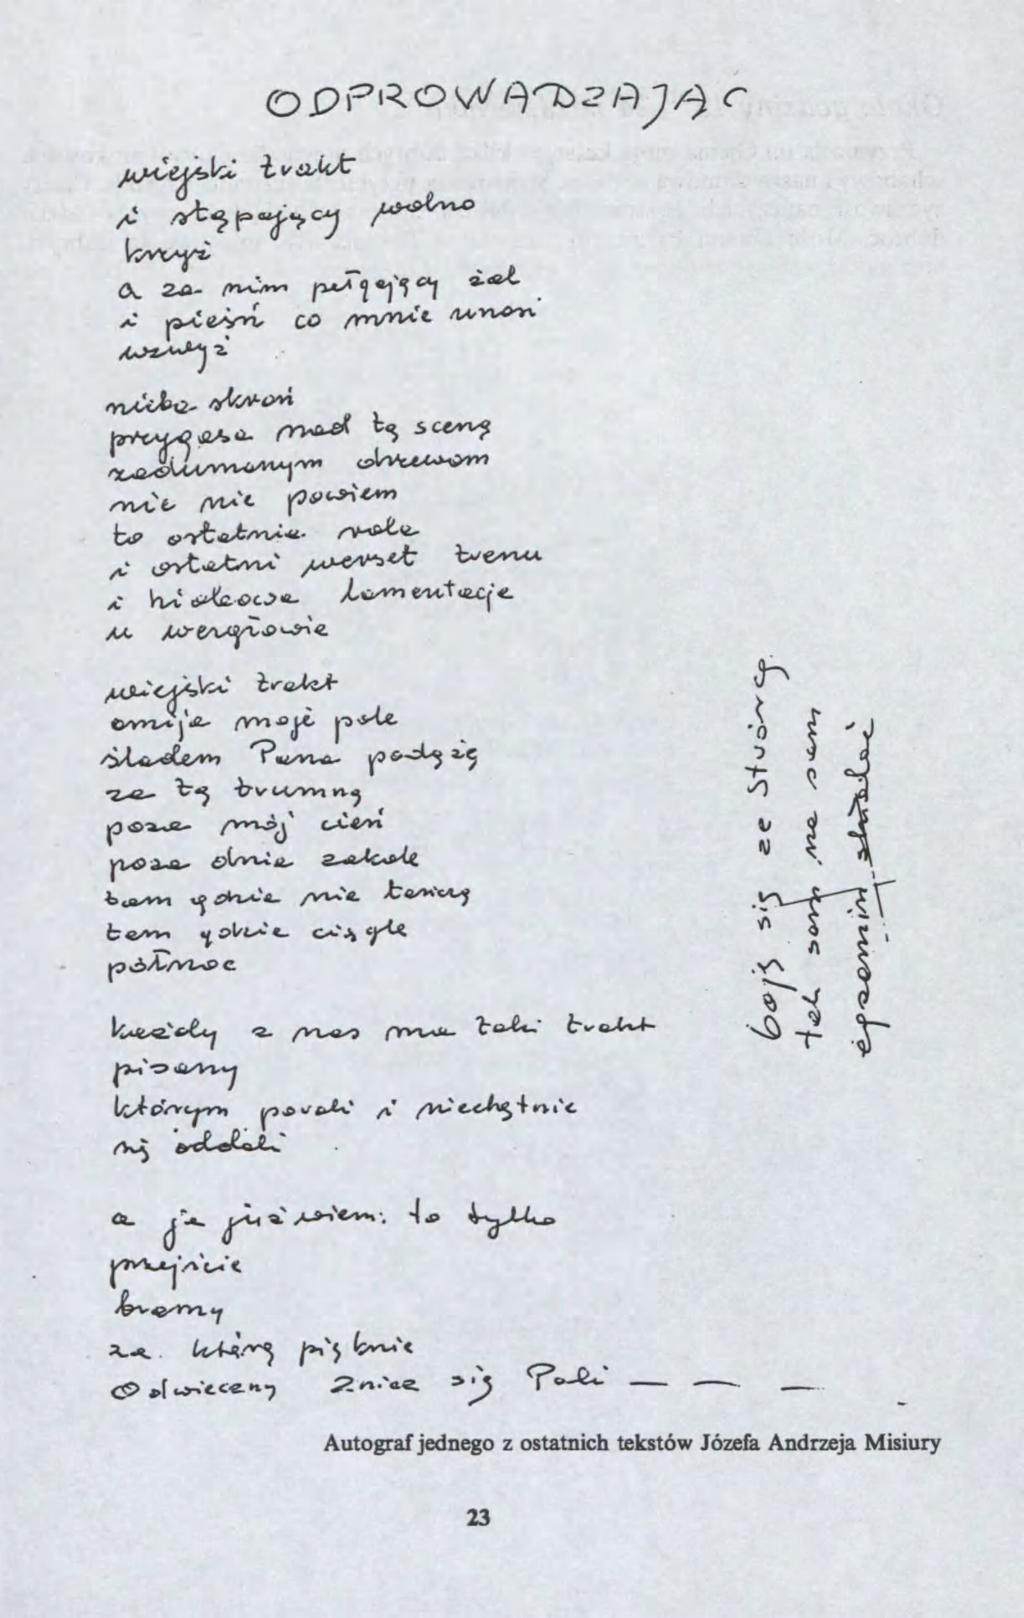 ODPROWADZAJĄC
wiejski trakt
i stąpający wolno
krzyż
a za nim pełgający żal
i pieśń co mnie unosi
wzwyż
nieba skroń
przygasa nad tą sceną
zadumanym drzewom
nic nie powiem
to ostatnia rola
i ostatni werset trenu
i hiobowa lamentacja
u wezgłowia
wiejski trakt
omija moje pole
śladem Pana podążę
za tą trumną
poza mój cień
poza dnia zakole
tam gdzie nie tańczą
tam gdzie ciągle
północ
każdy z nas ma taki trakt
pisany
którym powoli i niechętnie
się oddali
a ja już wiem: to tylko
przejście
bramy
za którą pięknie
Odwieczny Znicz się Pali — — —
boję się ze Stwórcą
tak sam na sam
egzamin zdać
Autograf jednego z ostatnich tekstów Józefa Andrzeja Misiury
23